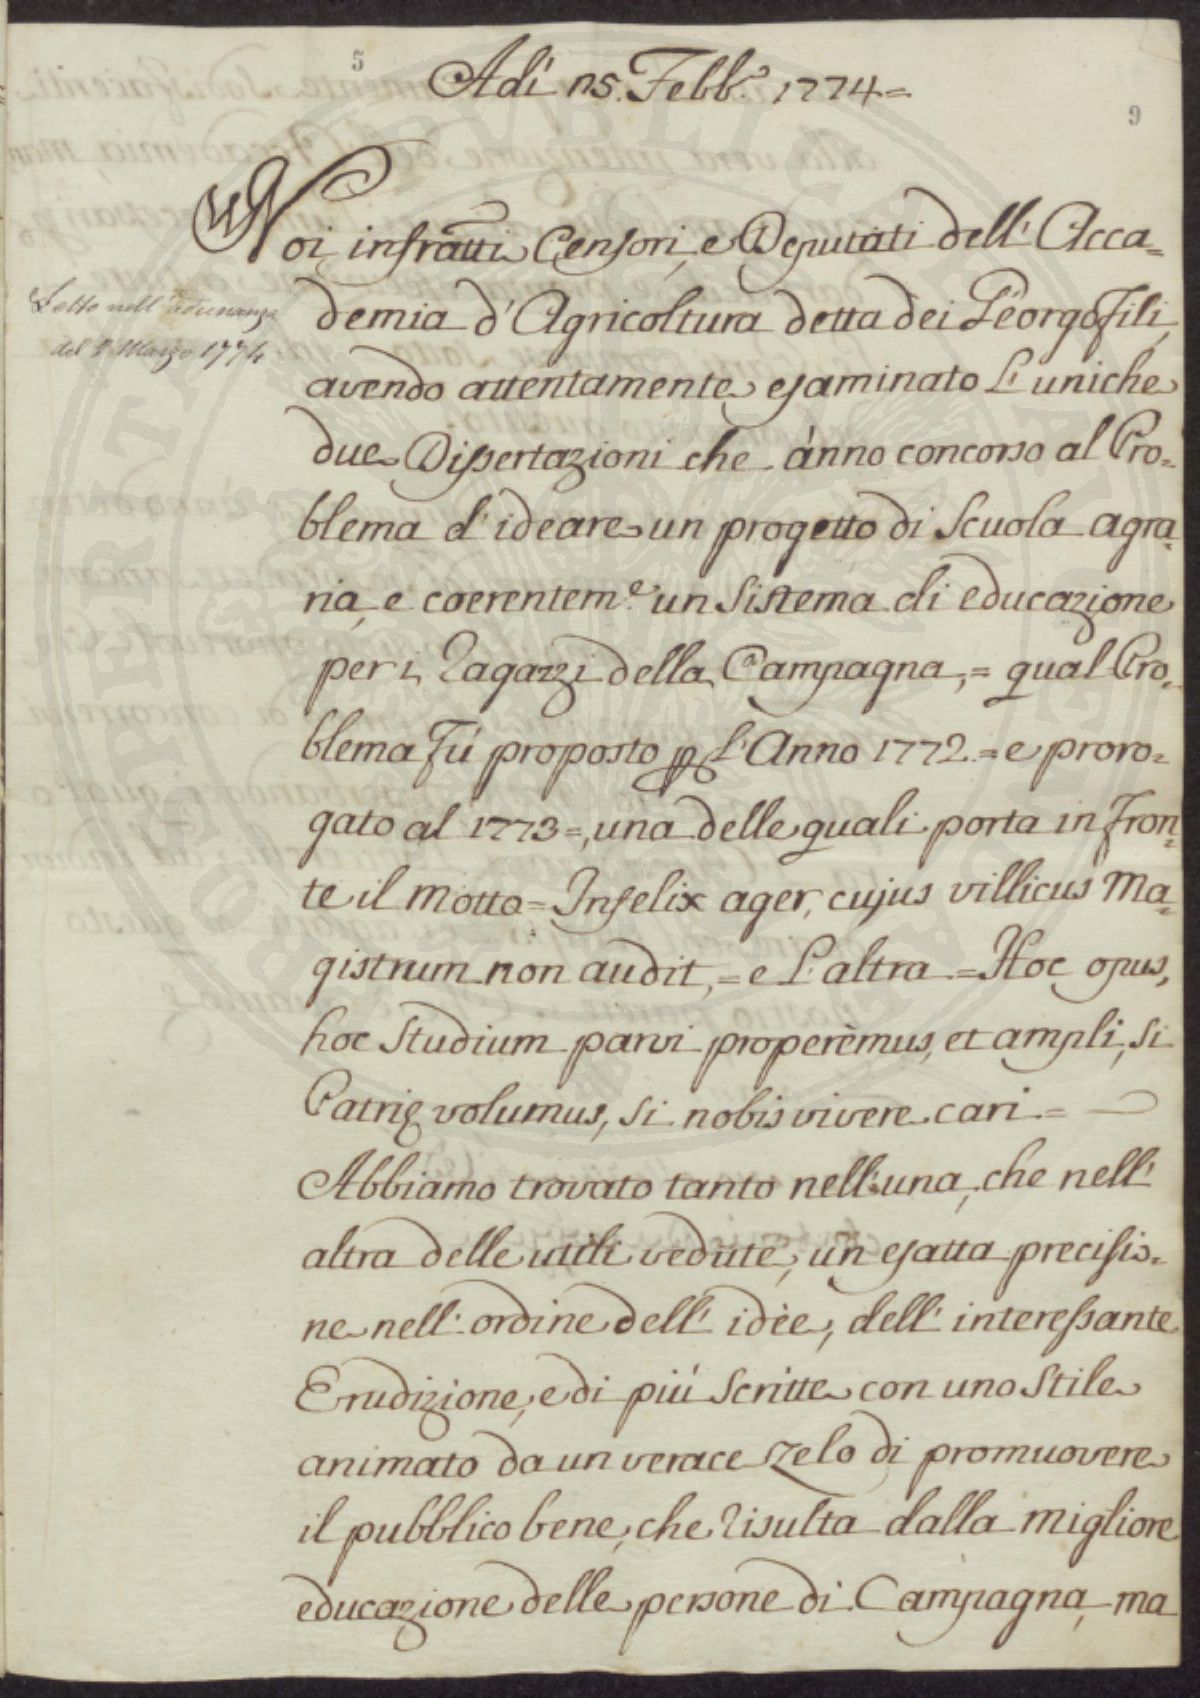 5
Adí 15. Febb.º 1774=
9
Noi infratti Censori, e Deputati dell' Acca=
Letto nell' adunanza
del 2 Marzo 1774
demia d' Agricoltura detta dei Georgofili,
avendo attentamente esaminato l' uniche
due Dissertazioni che ánno concorso al Pro=
blema d' ideare un progetto di Scuola agra=
ria, e coerentem.e un Sistema di educazione
per i Ragazzi della Campagna,= qual Pro=
blema fú proposto p l' Anno 1772.= e proro=
gato al 1773=, una delle quali porta in fron=
te il Motto= Infelix ager, cujus villicus Ma=
gistrum non audit,= e l' altra = Hoc opus,
hoc Studium parvi properèmus, et ampli, si
Patrię volumus, si nobis vivere cari=
Abbiamo trovato tanto nell' una, che nell'
altra delle utili vedute, un esatta precisio=
ne nell' ordine dell' idèe, dell' interessante
Erudizione, e di piú scritte con uno Stile
animato da un verace Zelo di promuovere
il pubblico bene, che risulta dalla migliore
educazione delle persone di Campagna, ma